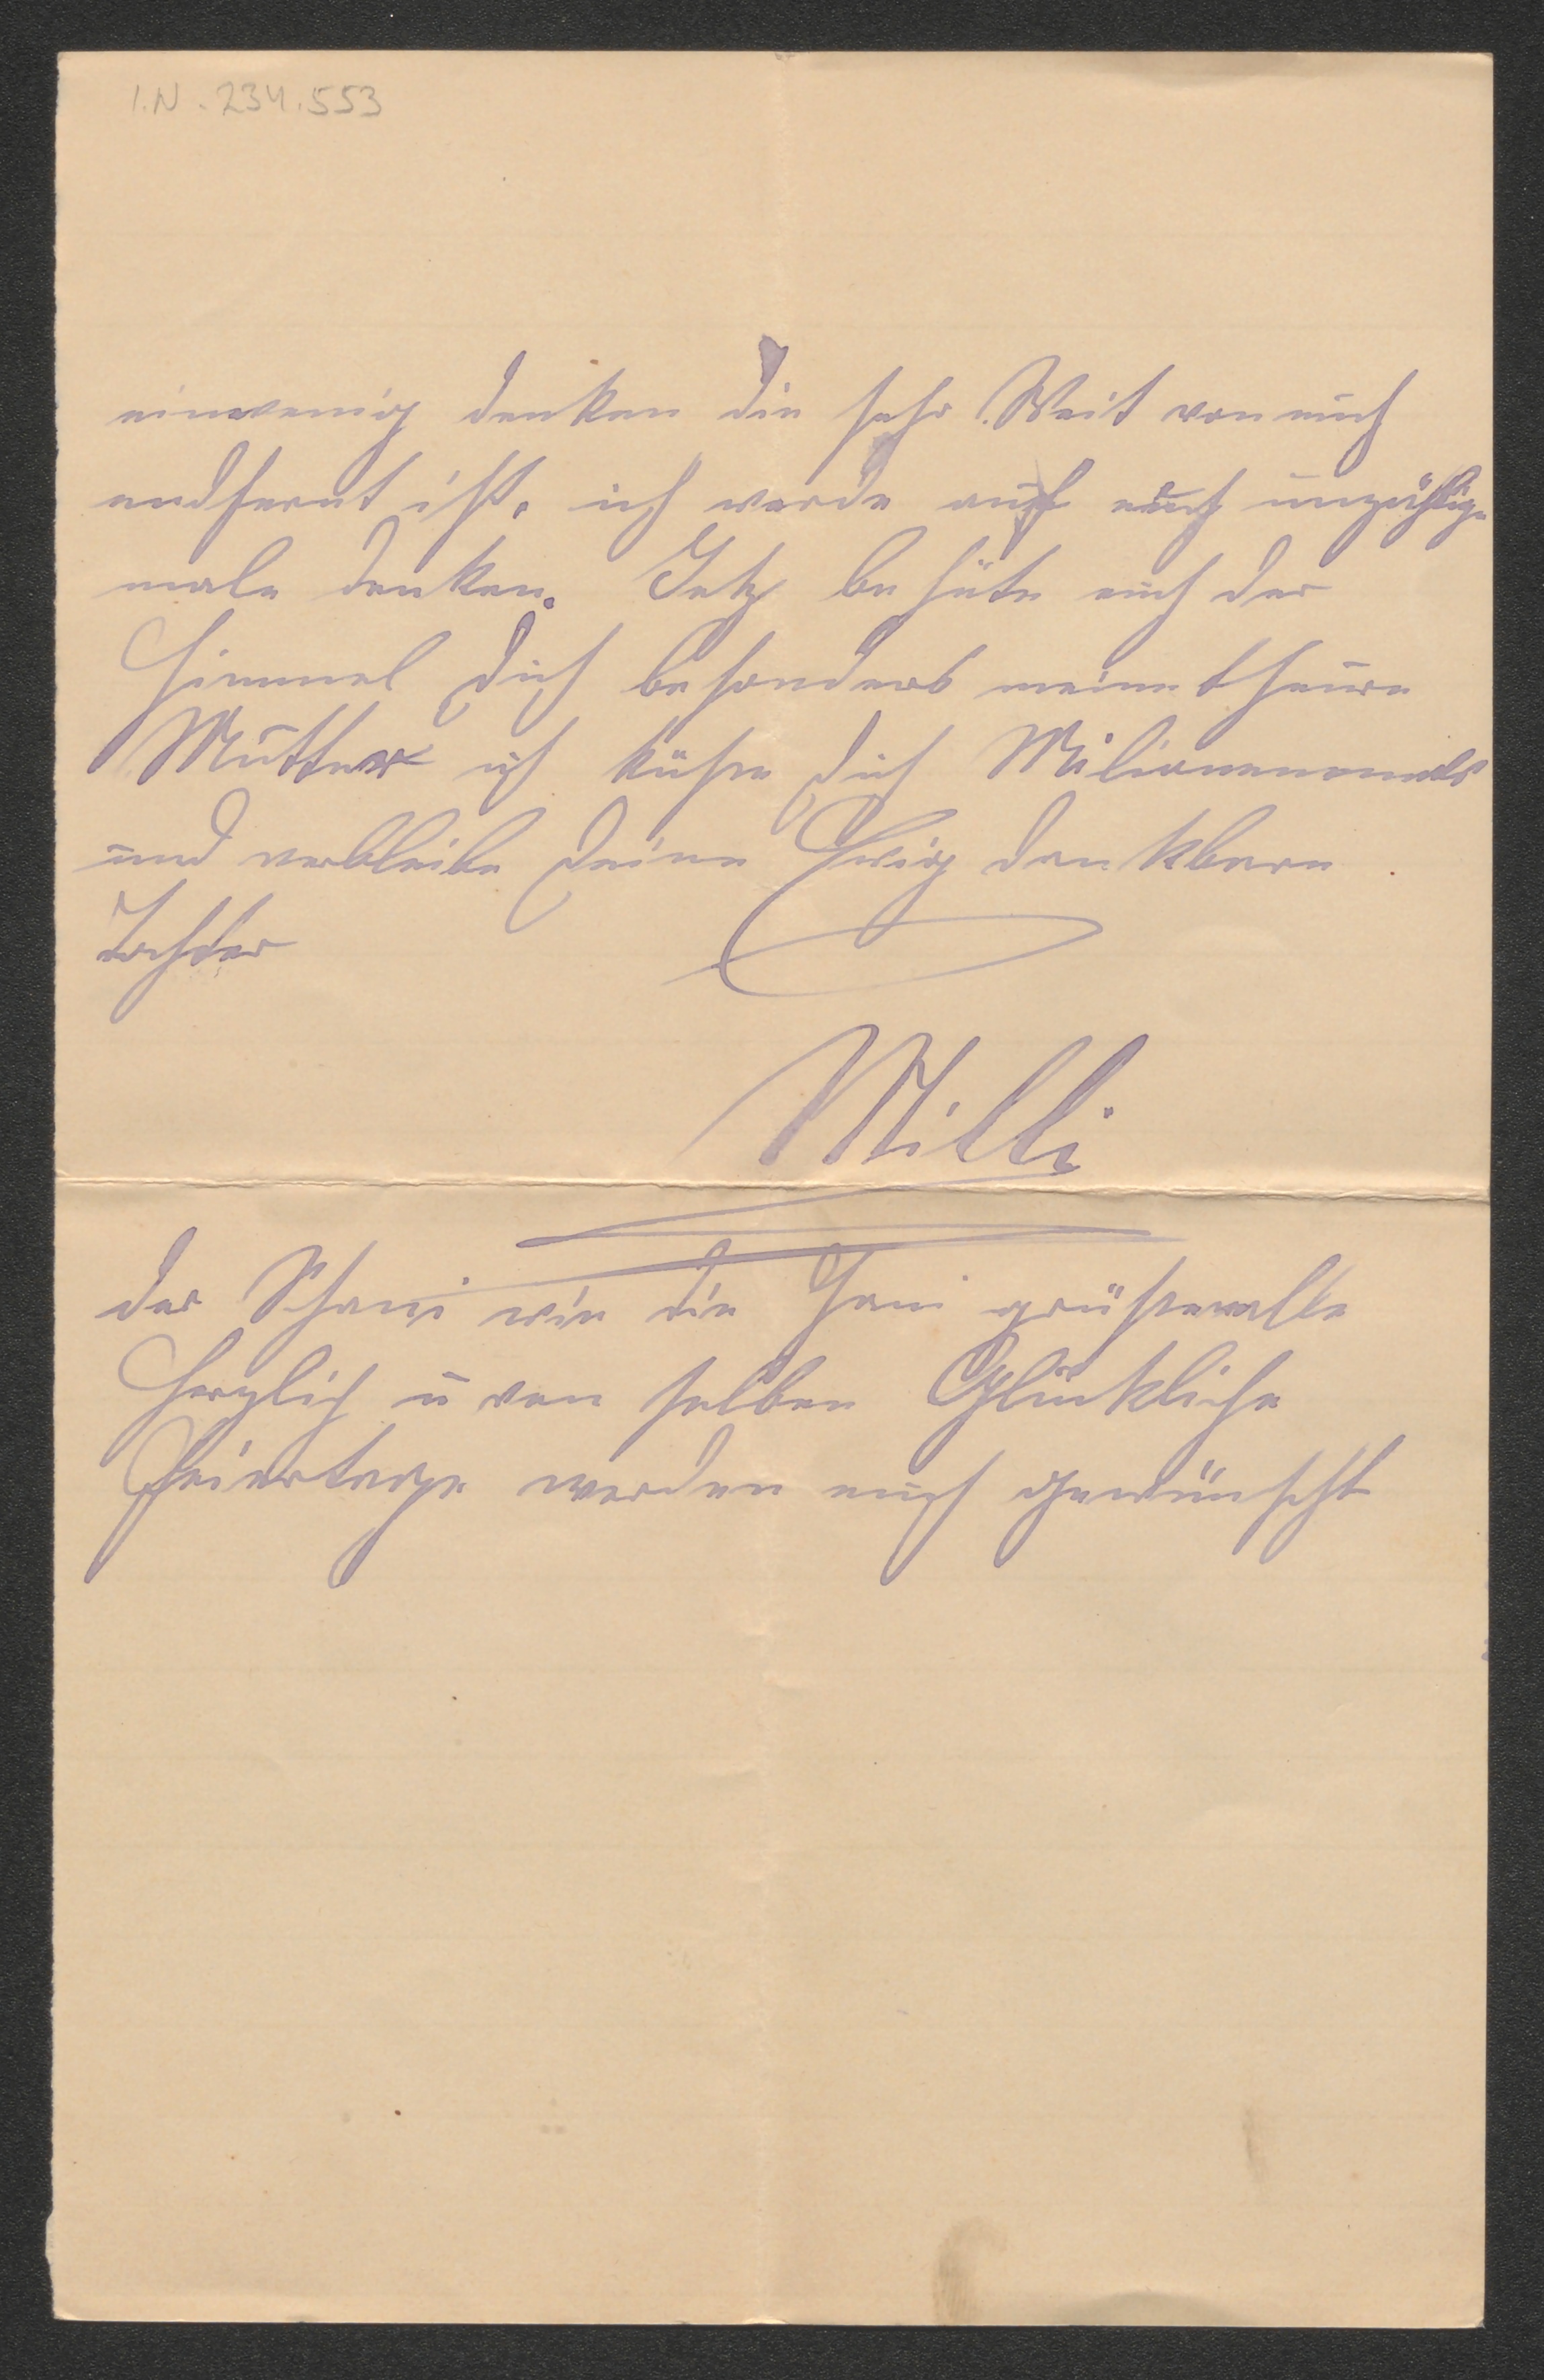 I.N. 234.553
einwenig denken die sehr Weit von euch
endfernt ist. ich werde auf euch unzählige
male denken. Jetz behüte euch der
Himmel dich besonders meine theure
Mutter ich küße dich Milionenmals
und verbleibe deine Ewig dankbare
Tochter
Milli
der Schani wie die Hani grüßen alle
Herzlich u von selben Glückliche
Feiertage werden euch gewünscht